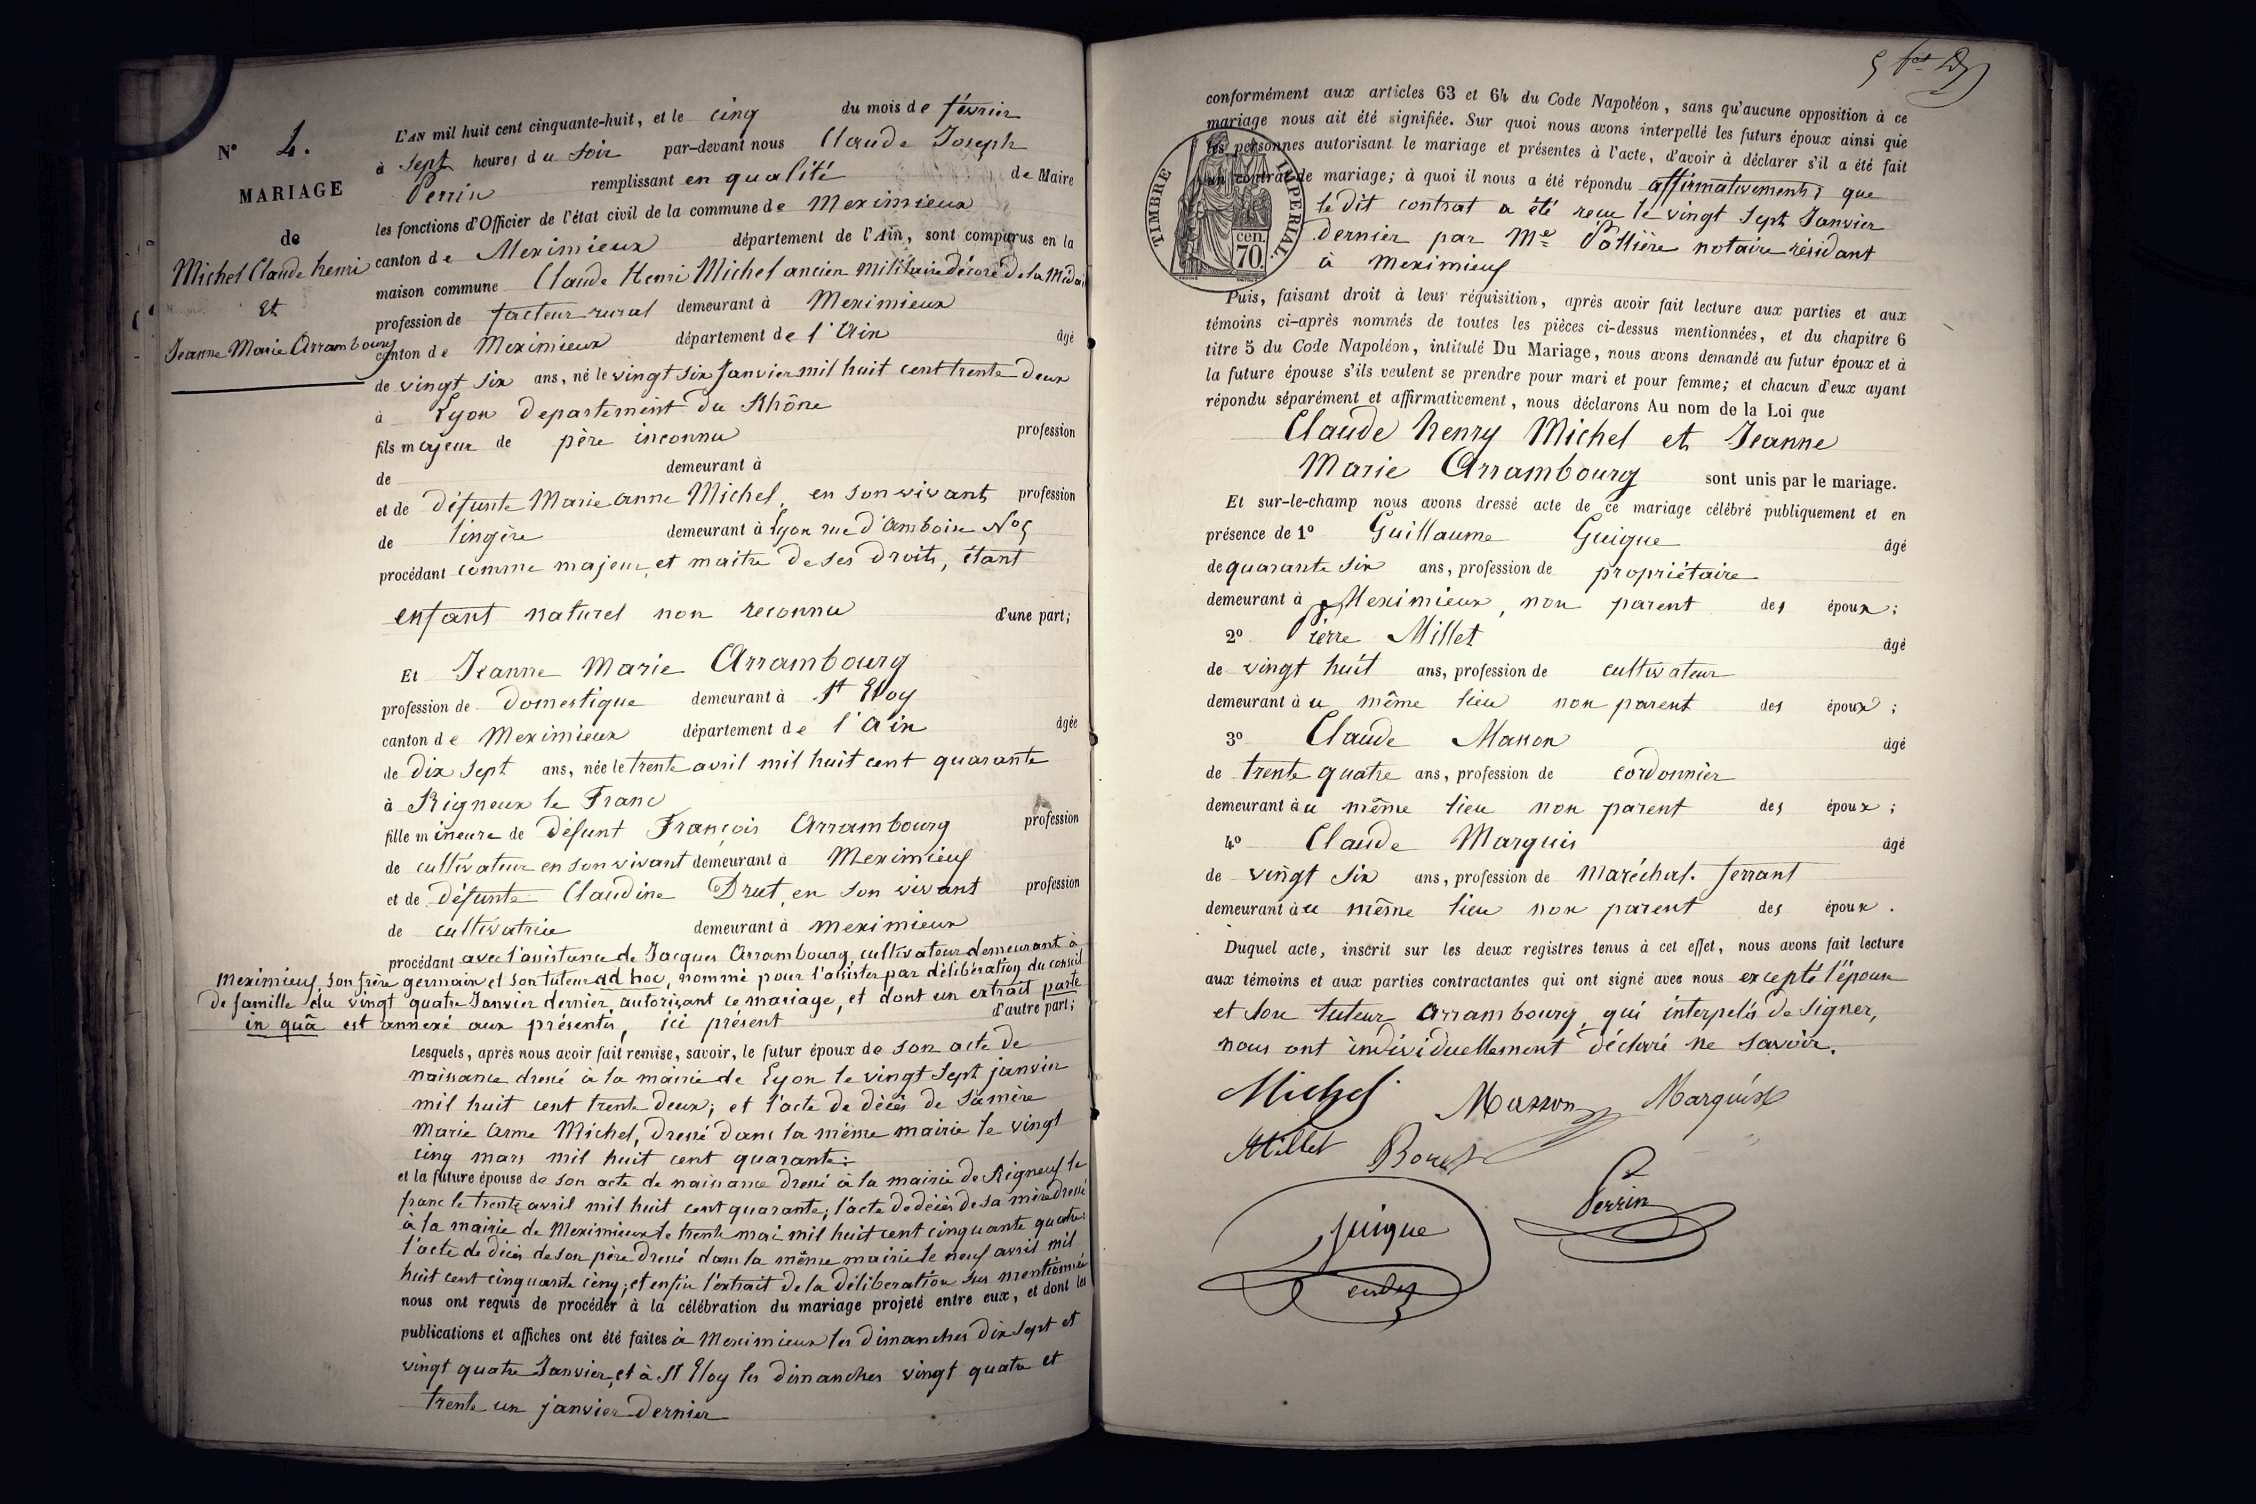 N° 4.
MARIAGE
de
Michel Claude henri
et
Jeanne Marie Arrambourg
L'AN mil huit cent cinquante-huit, et le cinq du mois de février
à sept heures du soir par-devant nous Claude Joseph
Perrin remplissant en qualité de Maire
les fonctions d'Officier de l'état civil de la commune de Meximieux
canton de Meximieux département de l'Ain, sont comparus en la
maison commune Claude Henri Michel ancien militaire décoré de la Méda
profession de facteur rural demeurant à Meximieux
canton de Meximieux département de l'Ain âgé
de vingt six ans, né le vingt six Janvier mil huit cent trente deux
à Lyon departement du Rhône
fils majeur de père inconnu profession
de demeurant à
et de défunte Marie anne Michel, en son vivant profession
de lingère demeurant à Lyon rue d'amboise N° 5
procédant comme majeur, et maitre de ses droits, étant
enfant naturel non reconnu d'une part;
Et Jeanne Marie Arrambourg
profession de domestique demeurant à St Eloy
canton de Meximieux département de l'Ain âgée
de dix sept ans, née le trente avril mil huit cent quarante
à Rigneux le Franc
fille mineure de défunt François Arrambourg profession
de cultivateur en son vivant demeurant à Meximieux
et de défunte Claudine Drut, en son vivant profession
de cultivatrice demeurant à meximieux
procédant avec l'assistance de Jacques Arrambourg, cultivateur demeurant à
meximieux, son frère germain et son tuteur ad hoc, nommé pour l'assister par délibération du conseil
de famille du vingt quatre Janvier dernier, autorisant ce mariage, et dont un extrait parte
in quâ est annexé aux présentes, ici présent d'autre part;
Lesquels, après nous avoir fait remise, savoir, le futur époux de son acte de
naissance dressé à la mairie de Lyon le vingt sept janvier
mil huit cent trente deux; et l'acte de décès de sa mère
Marie Anne Michel, dressé dans la même mairie le vingt
cinq mars mil huit cent quarante;
et la future épouse de son acte de naissance dressé à la mairie de Rigneux le
franc le trente avril mil huit cent quarante; l'acte de décès de sa mère dressé
à la mairie de Meximieux le trente mai mil huit cent cinquante quatre;
l'acte de décès de son père dressé dans la même mairie le neuf avril mil
huit cent cinquante cinq; et enfin l'extrait de la délibération sus mentionnée
nous ont requis de procéder à la célébration du mariage projeté entre eux, et dont les
publications et affiches ont été faites à Meximieux les dimanches dix sept et
vingt quatre Janvier, et à St Eloy les dimanches vingt quatre et
trente un janvier dernier
5
conformément aux articles 63 et 64 du Code Napoléon, sans qu'aucune opposition à ce
mariage nous ait été signifiée. Sur quoi nous avons interpellé les futurs époux ainsi que
les personnes autorisant le mariage et présentes à l'acte, d'avoir à déclarer s'il a été fait
un contrat de mariage; à quoi il nous a été répondu affirmativement; que
le dit contrat a été reçu le vingt sept Janvier
dernier par Me notaire résidant
à meximieux
TIMBRE IMPERIAL.
cen.
70.
Puis, faisant droit à leur réquisition, après avoir fait lecture aux parties et aux
témoins ci-après nommés de toutes les pièces ci-dessus mentionnées, et du chapitre 6
titre 5 du Code Napoléon, intitulé Du Mariage, nous avons demandé au futur époux et à
la future épouse s'ils veulent se prendre pour mari et pour femme; et chacun d'eux ayant
répondu séparément et affirmativement, nous déclarons Au nom de la Loi que
Claude henry Michel et Jeanne
Marie Arrambourg sont unis par le mariage.
Et sur-le-champ nous avons dressé acte de ce mariage célébré publiquement et en
présence de 1° Guillaume Guigue âgé
de quarante six ans, profession de propriétaire
demeurant à Meximieux, non parent des époux;
2° Pierre Millet âgé
de vingt huit ans, profession de cultivateur
demeurant au même lieu non parent des époux;
3° Claude Masson âgé
de trente quatre ans, profession de cordonnier
demeurant au même lieu non parent des époux;
4° Claude Marquis âgé
de vingt six ans, profession de Maréchal. ferrant
demeurant au même lieu non parent des époux.
Duquel acte, inscrit sur les deux registres tenus à cet effet, nous avons fait lecture
aux témoins et aux parties contractantes qui ont signé avec nous excepté l'épouse
et son tuteur Arrambourg, qui interpelés de signer,
nous ont individuellement déclaré ne savoir.
Michel Masson Marquis
Millet
Guigue Perrin